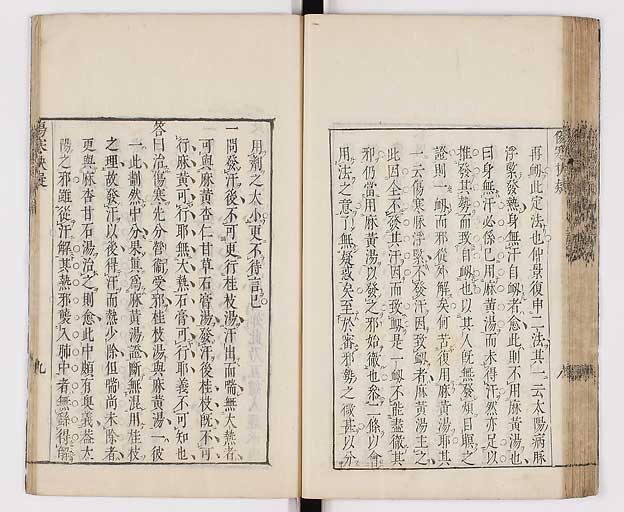 再衂此定法也仲景復申二法其一云太陽病脉
浮緊發熱身無汗自衂者愈此則不用麻黃湯也
曰身無汗必係已用麻黃湯而未得汗然亦足以
推發其勢而致自衂也以其人旣無發煩目瞑之
證則一衂而邪從外解矣何苦復用麻黃湯耶其
一云傷寒脉浮緊不發汗因致衂者麻黃湯主之
此因全不發其汗因而致衂是一衂不能盡徹其
邪仍當用麻黃湯以發之邪始徹也叅二條以會
用法之意了無疑惑矣至於審邪勢之微甚以分
用劑之大小更不待言已
一問發汗後不可更行桂枝湯汗出而喘無大熱者
可與麻黃杏仁甘草石膏湯發汗後桂枝旣不可
行麻黃可行耶無大熱石膏可行耶義不可知也
答曰治傷寒先分營衞受邪桂枝湯與麻黃湯一彼
一此劃然中分果真爲麻黃湯證斷無混用桂枝
之理故發汗以後得汗而熱少除但喘尚未除者
更與麻杏甘石湯治之則愈此中頗有奧義葢太
陽之邪雖從汗解其熱邪襲入肺中者無繇得解